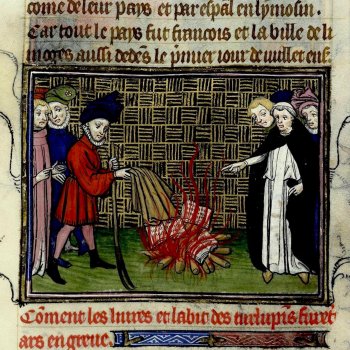 come de leur pays et par espal en lymosin.
Car tout le pays fut francois et la ville de li
moges aussi dedens le premier iour de iuillet ens
Coment les liures et labit des turlupins furet
ars en greue.